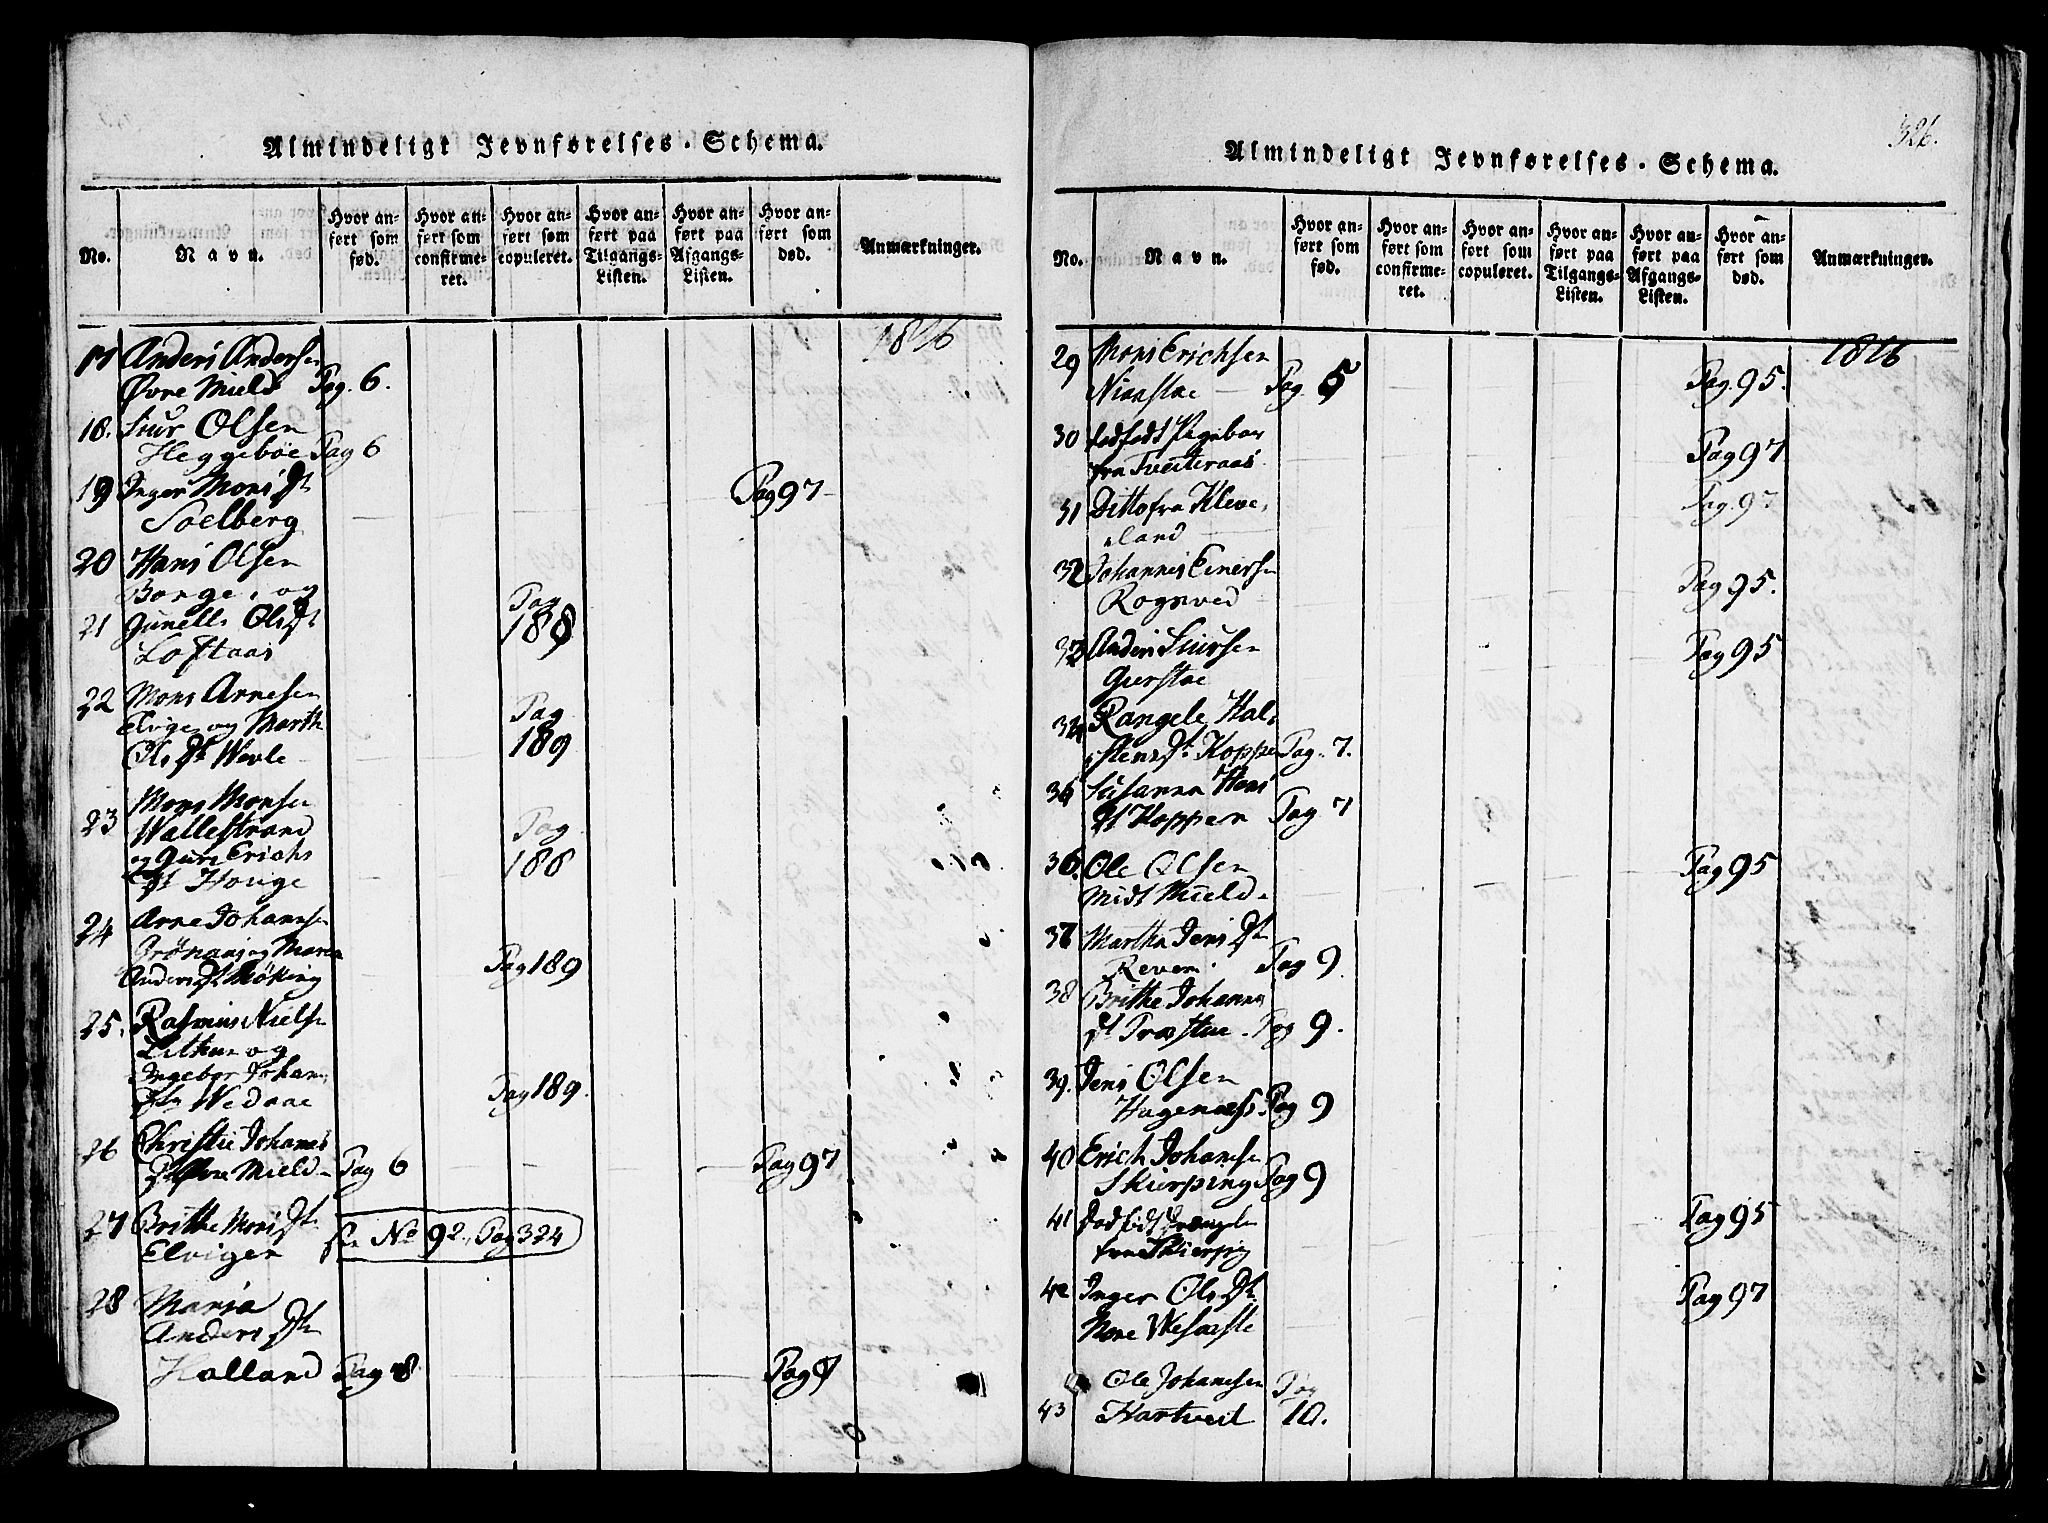 Almindeligt Jevnførelses-Schema.
No.
Navn.
Hvor anført som fød.
Hvor anført som confirmeret.
Hvor anført som copuleret.
Hvor anført paa Tilgangs-Listen.
Hvor anført paa Afgangs-Listen.
Hvor anført som død.
Anmærkninger.
1816
17 Anders Andersen
Øvre Mield Pag. 6.
18. Siur Olsen
Heggebøe Pag 6
19 Inger Mons Dt
Soelberg Pag 97
20 Hans Olsen
Borge, og
21 Gunelle Ols Dt
Loftaas Pag 188
22 Mons Arnesen
Elvige og Marth
Ols Dt Wevle Pag 189
23 Mons Monsen
Wallestrand
og Guri Erichs
Dt Houge Pag 188
24 Arne Johannsen
og Maren
Anders Dt Pag 189
25. Rasmus Nielsen
og
Ingebor Johan,
Wedaae Pag 189.
26 Christie Johannes
Dt Øvre Mield Pag 6 Pag 97
27 Brithe Mons Dt
Elvigen se No 92, Pag 324
28 Maria
Anders Dt
Holland Pag 8 Pag 9
326.
Almindeligt Jevnførelses-Schema.
No.
Navn.
Hvor anført som fød.
Hvor anført som confirmeret.
Hvor anført som copuleret.
Hvor anført paa Tilgangs-Listen.
Hvor anført paa Afgangs-Listen.
Hvor anført som død.
Anmærkninger.
1816
29 Mons Erichsen
Niaastae Pag. 5 Pag. 95.
30 dødfødt Pigebarn
fra Tveiteraas Pag 97
31 Ditto fra Kleve,
land Pag. 97
32 Johannes Einersen
Rognved Pag 95.
33 Anders Siursen
Gierstae Pag 95
34 Rangele Hal,
stens Dt Koppen Pag. 7.
35 Susanna Hans
Dt Koppen Pag 7
36. Ole Olsen
Midt Mield Pag 95
37 Martha Jens Dt
Reven Pag 9.
38 Brithe Johannes
Dt Træstue Pag 9.
39. Jens Olsen
Hagenæss Pag 9
40 Erich Johansen
Skierping Pag 9
41 Dødfødt Drængeb
fra Skierping Pag 95
42 Inger Ols Dt.
Nore Pag 97
43 Ole Johannesen
Hartveit Pag 10.